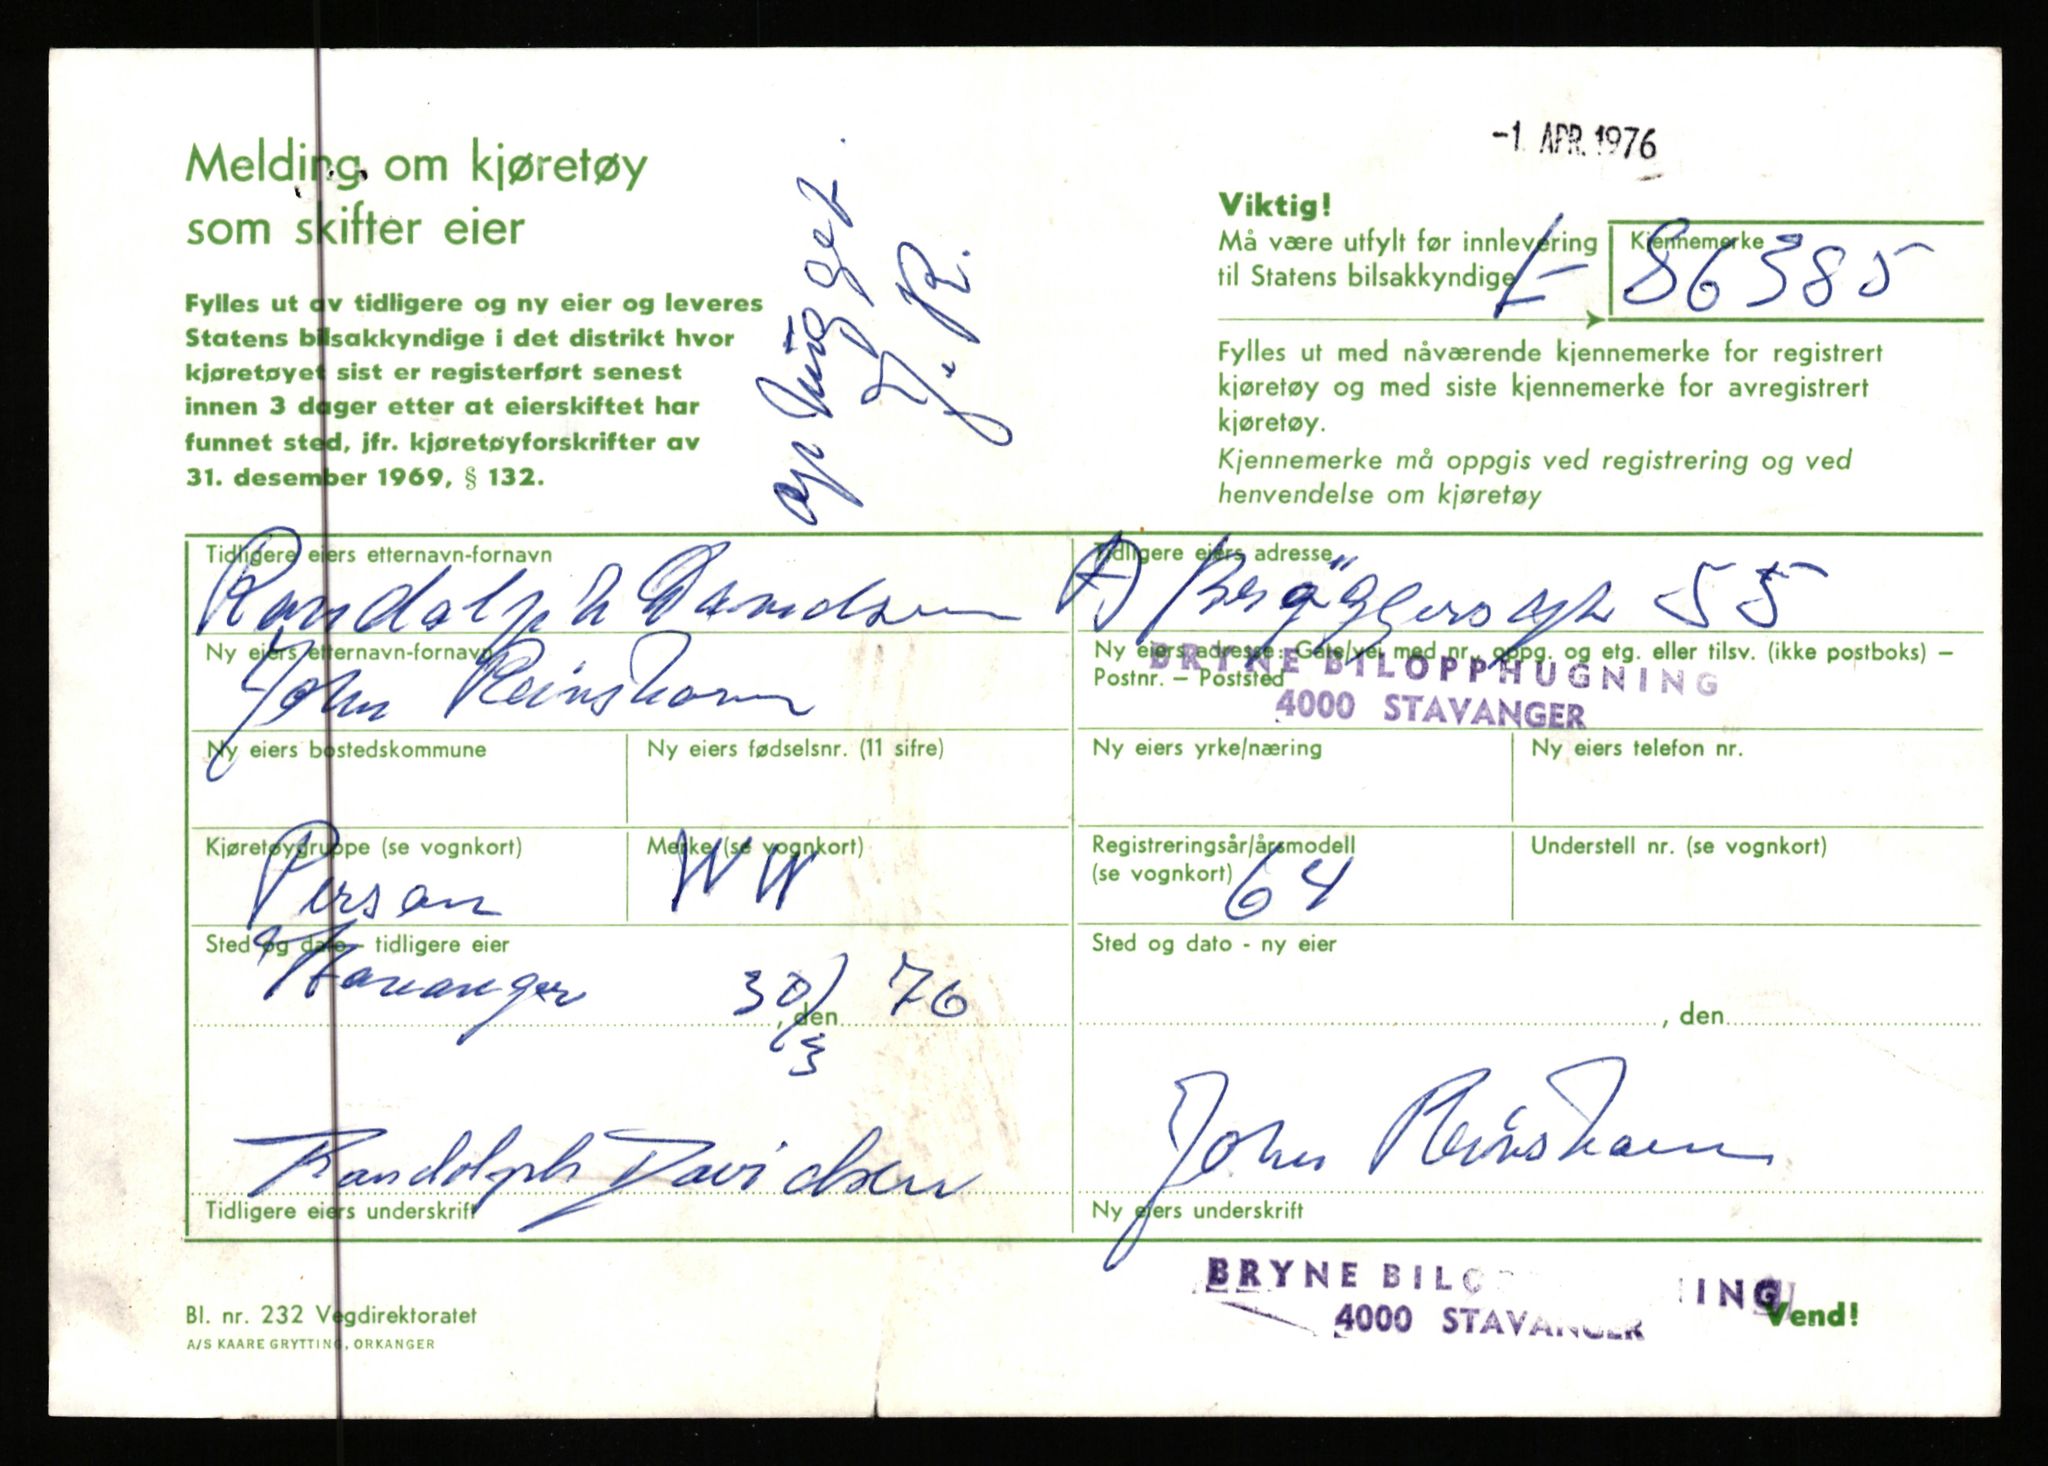 -1. APR. 1976
Melding om kjøretøy
som skifter eier
Fylles ut av tidligere og ny eier og leveres
Statens bilsakkyndige i det distrikt hvor
kjøretøyet sist er registerført senest
innen 3 dager etter at eierskiftet har
funnet sted, jfr. kjøretøyforskrifter av
31. desember 1969, § 132.
J. R.
Viktig!
Må være utfylt før innlevering
til Statens bilsakkyndige
Kjennemerke
L- 86385
Fylles ut med nåværende kjennemerke for registrert
kjøretøy og med siste kjennemerke for avregistrert
kjøretøy.
Kjennemerke må oppgis ved registrering og ved
henvendelse om kjøretøy
Tidligere eiers etternavn-fornavn
Randolph Davidsen
Tidligere eiers adresse
55
Ny eiers etternavn-fornavn
John Reinskau
Ny eiers adresse: Gate/vei med nr., oppg. og etg. eller tilsv. (ikke postboks) –
Postnr. – Poststed
BRYNE BILOPPHUGNING
4000 STAVANGER
Ny eiers bostedskommune
Ny eiers fødselsnr. (11 sifre)
Ny eiers yrke/næring
Ny eiers telefon nr.
Kjøretøygruppe (se vognkort)
Person
Merke (se vognkort)
WW
Registreringsår/årsmodell
(se vognkort)
64
Understell nr. (se vognkort)
Sted og dato - tidligere eier
Stavanger 30/3 , den 76
Sted og dato - ny eier
, den
Randolph Davidsen
Tidligere eiers underskrift
John Reinskau
Ny eiers underskrift
BRYNE BILO NING
4000 STAVANGER
Bl. nr. 232 Vegdirektoratet
A/S KAARE GRYTTING, ORKANGER
Vend!